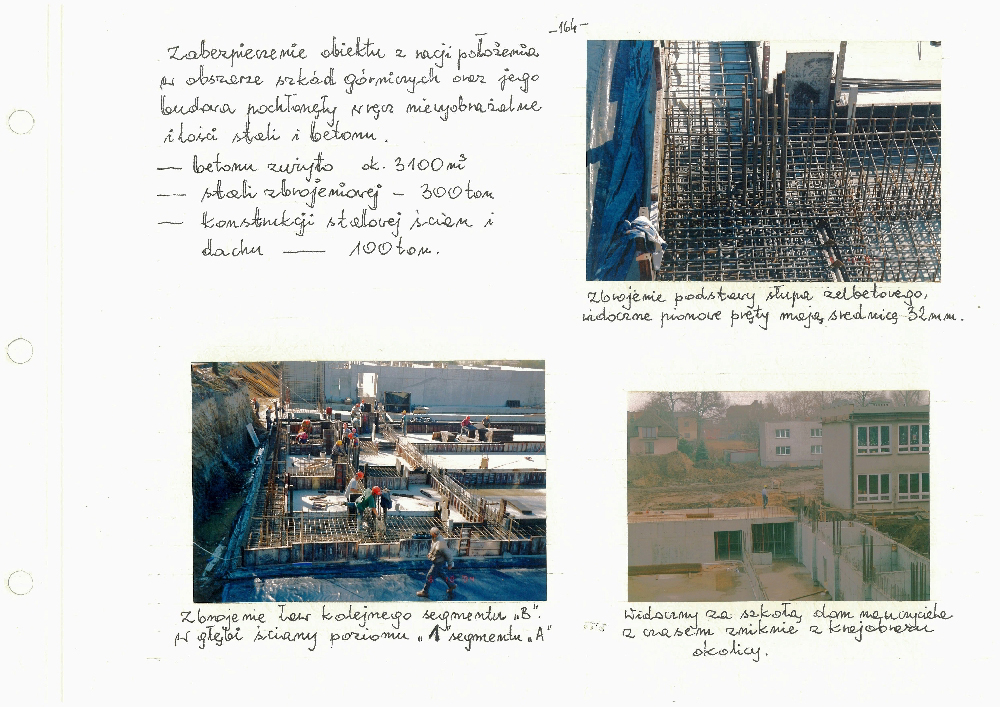 -164-
Zabezpieczenie obiektu z racji położenia
w obszarze szkód górniczych oraz jego
budowa pochłonęły wręcz niewyobrażalne
ilości stali i betonu.
— betonu zużyto ok. 3100 m³
— stali zbrojeniowej - 300 ton
— konstrukcji stalowej ścian i
dachu — 100 ton.
Zbrojenie podstawy słupa żelbetowego,
widoczne pionowe pręty mają średnicę 32 mm.
Zbrojenie ław kolejnego segmentu „B".
w głębi ściany poziomu „1" segmentu „A"
Widoczny za szkołą dom nauczyciela
z czasem zniknie z krajobrazu
okolicy.